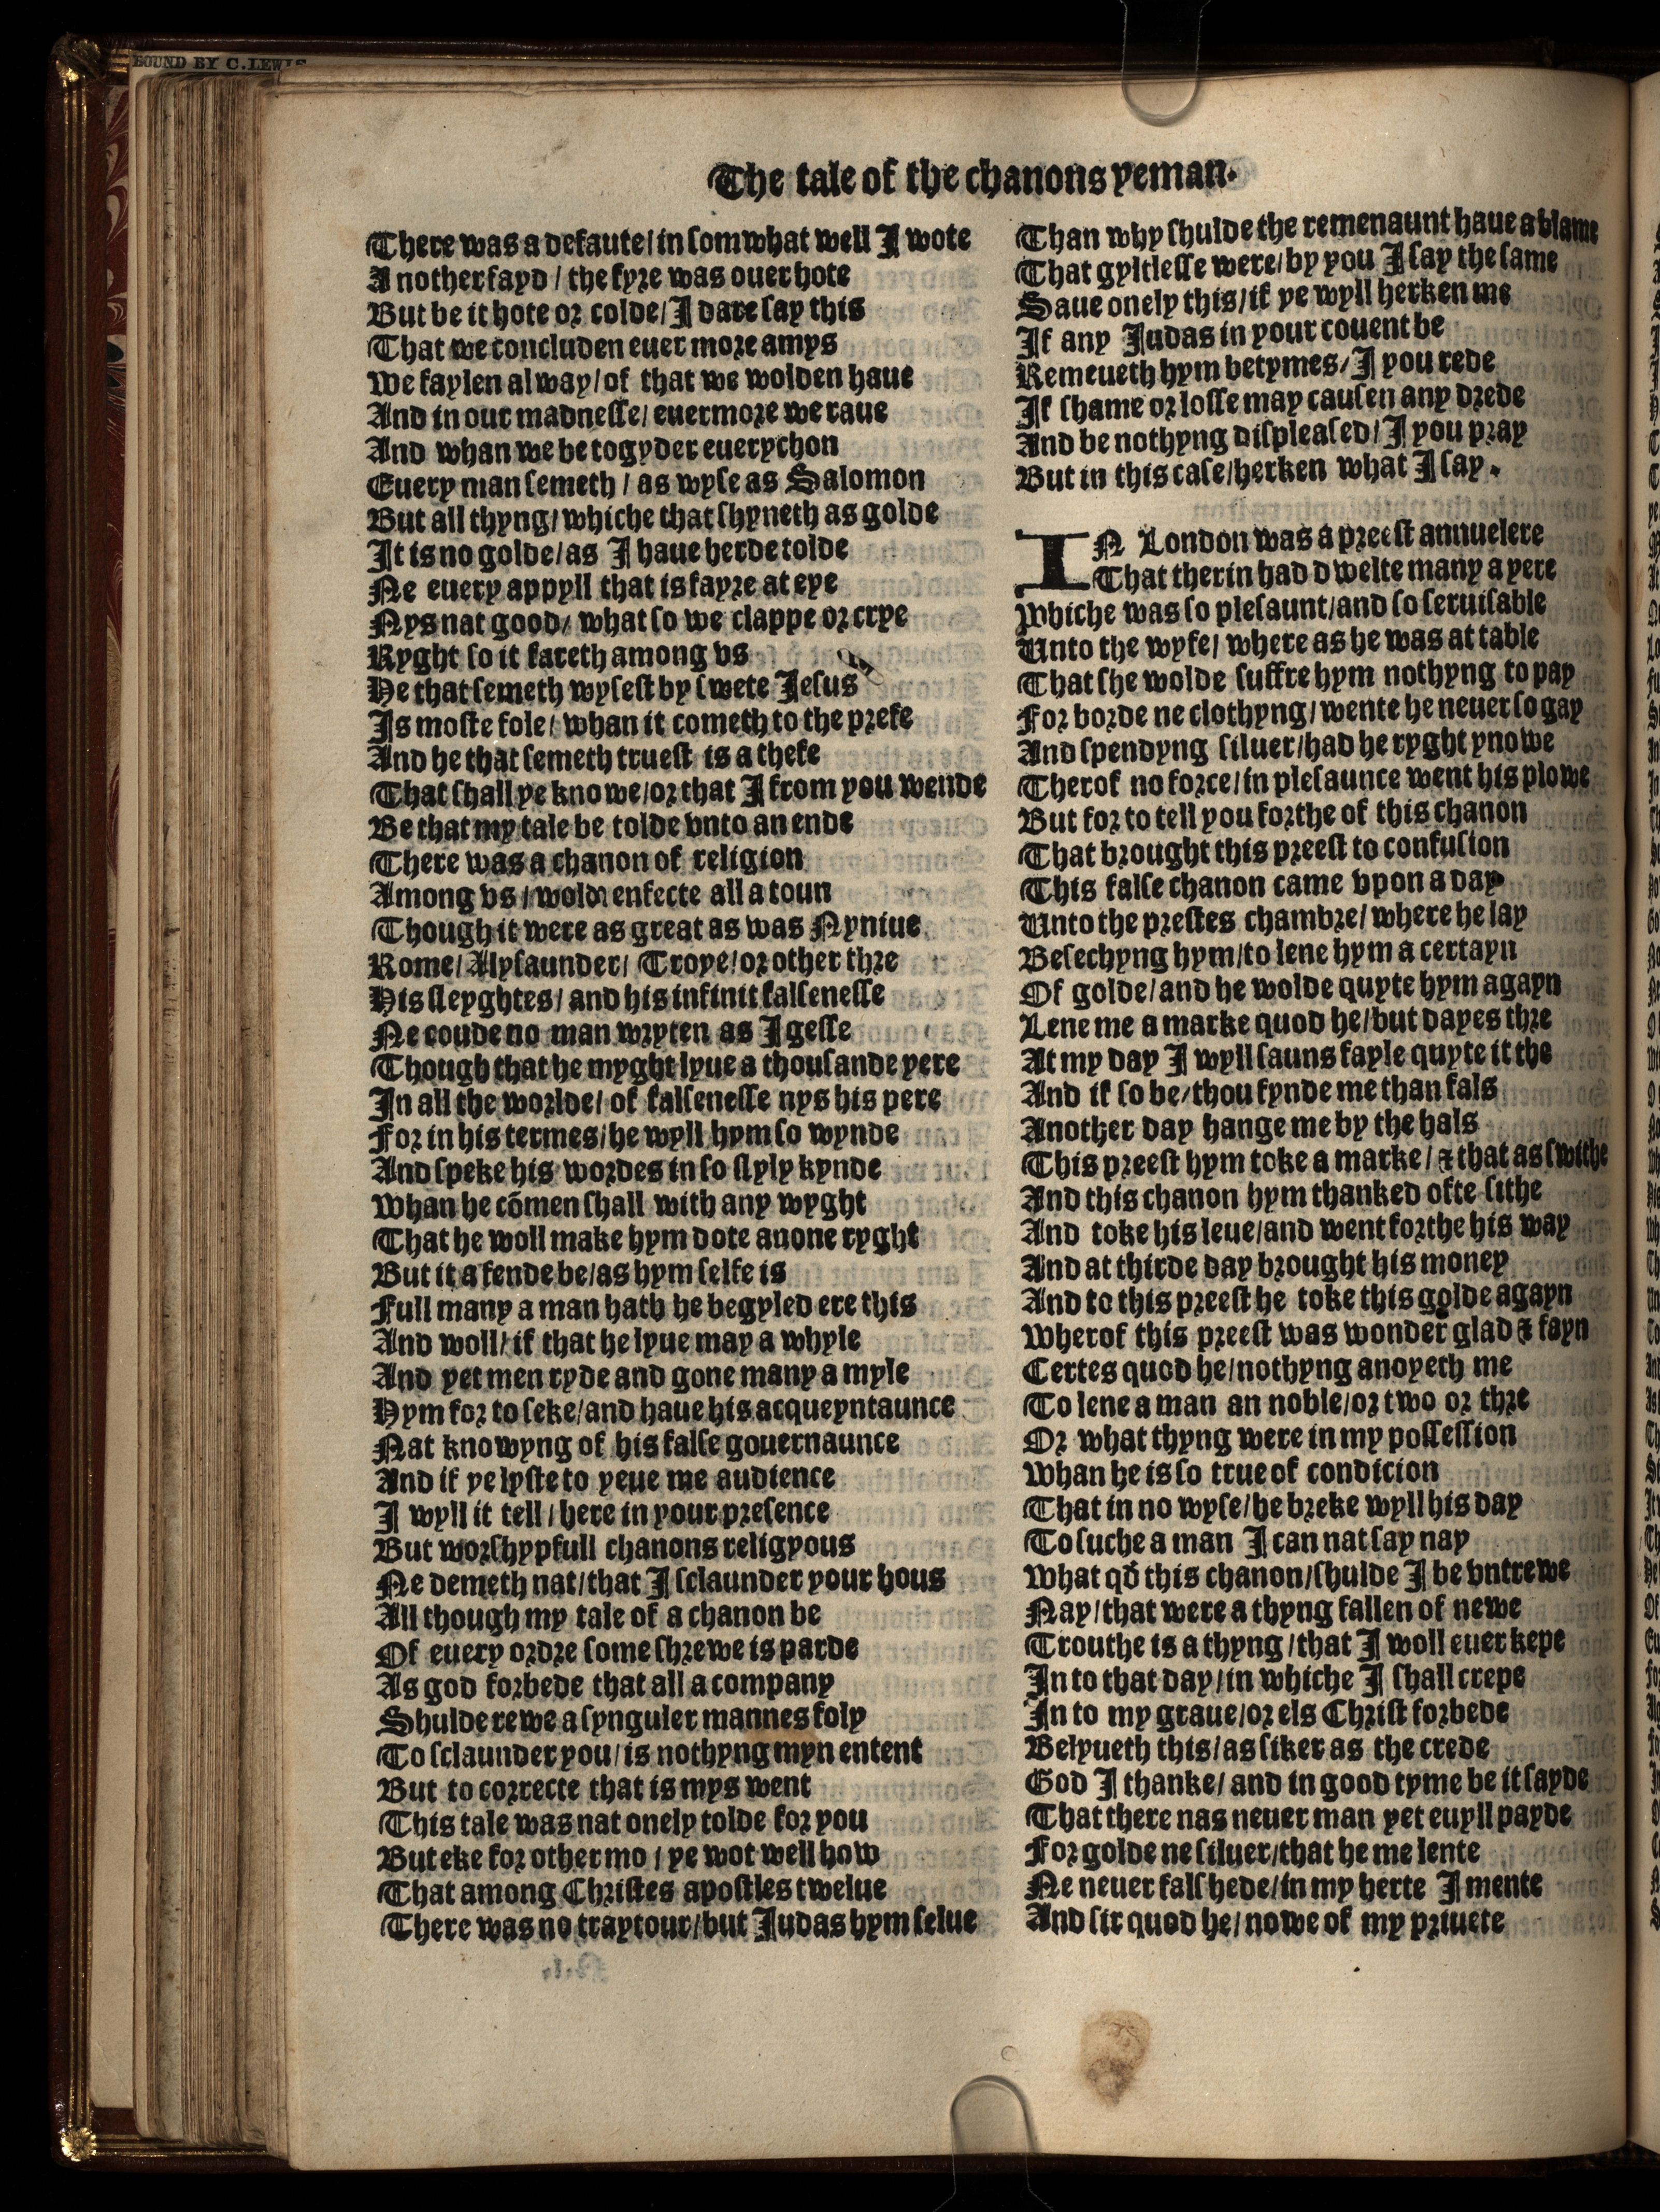 BOUND BY C. LEWIS
The tale of the chanons yeman.
There was a defaute/ in somwhat well I wote
A nother sayd / the fyre was ouer hote
But be it hote or colde/ I dare say this
That we concluden euer more amys
We faylen alway/ of that we wolden haue
And in our madnesse/ euermore we raue
And whan we be togyder euerychon
Euery man semeth / as wyse as Salomon
But all thyng/ whiche that shyneth as golde
It is no golde/ as I haue herde tolde
Ne euery appyll that is fayre at eye
Nys nat good/ what so we clappe or crye
Ryght so it fareth among vs
He that semeth wysest by swete Jesus
Is moste fole/ whan it cometh to the prefe
And he that semeth truest is a thefe
That shall ye knowe/ or that I from you wende
Be that my tale be tolde vnto an ende
There was a chanon of religion
Among vs / wolde enfecte all a toun
Though it were as great as was Nyniue
Rome/ Alysaunder/ Troye/ or other thre
His sleyghtes/ and his infinit falsenesse
Ne coude no man wryten as I gesse
Though that he myght lyue a thousande yere
In all the worlde/ of falsenesse nys his pere
For in his termes/ he wyll hym so wynde
And speke his wordes in so slyly kynde
Whan he cōmen shall with any wyght
That he woll make hym dote anone ryght
But it a fende be/ as hym selfe is
Full many a man hath he begyled ere this
And woll/ if that he lyue may a whyle
And yet men ryde and gone many a myle
Hym for to seke/ and haue his acqueyntaunce
Nat knowyng of his false gouernaunce
And if ye lyste to yeue me audience
I wyll it tell / here in your presence
But worshypfull chanons religyous
Ne demeth nat/ that I sclaunder your hous
All though my tale of a chanon be
Of euery ordre some shrewe is parde
As god forbede that all a company
Shulde rewe a synguler mannes foly
To sclaunder you/ is nothyng myn entent
But to correcte that is mys went
This tale was nat onely tolde for you
But eke for other mo / ye wot well how
That among Christes apostles twelue
There was no traytour/ but Judas hym selue
Than why shulde the remenaunt haue a blame
That gyltlesse were/ by you I say the same
Saue onely this/ if ye wyll herken me
If any Judas in your couent be
Remeueth hym betymes/ I you rede
If shame or losse may causen any drede
And be nothyng displeased/ I you pray
But in this case/ herken what I say.
IN London was a preest annuelere
That therin had dwelte many a yere
Whiche was so plesaunt/ and so seruisable
Unto the wyfe/ where as he was at table
That she wolde suffre hym nothyng to pay
For borde ne clothyng/ wente he neuer so gay
And spendyng siluer/ had he ryght ynowe
Therof no force/ in plesaunce went his plowe
But for to tell you forthe of this chanon
That brought this preest to confusion
This false chanon came vpon a day
Unto the prestes chambre/ where he lay
Besechyng hym/ to lene hym a certayn
Of golde/ and he wolde quyte hym agayn
Lene me a marke quod he/ but dayes thre
At my day I wyll sauns fayle quyte it the
And if so be/ thou fynde me than fals
Another day hange me by the hals
This preest hym toke a marke/ & that as swithe
And this chanon hym thanked ofte sithe
And toke his leue/ and went forthe his way
And at thirde day brought his money
And to this preest he toke this golde agayn
Wherof this preest was wonder glad & fayn
Certes quod he/ nothyng anoyeth me
To lene a man an noble/ or two or thre
Or what thyng were in my possession
Whan he is so true of condicion
That in no wyse/ he breke wyll his day
To suche a man I can nat say nay
What qđ this chanon/ shulde I be vntrewe
Nay/ that were a thyng fallen of newe
Trouthe is a thyng / that I woll euer kepe
In to that day/ in whiche I shall crepe
In to my graue/ or els Christ forbede
Belyueth this/ as siker as the crede
God I thanke/ and in good tyme be it sayde
That there nas neuer man yet euyll payde
For golde ne siluer/ that he me lente
Ne neuer falshede/ in my herte I mente
And sir quod he/ nowe of my priuete